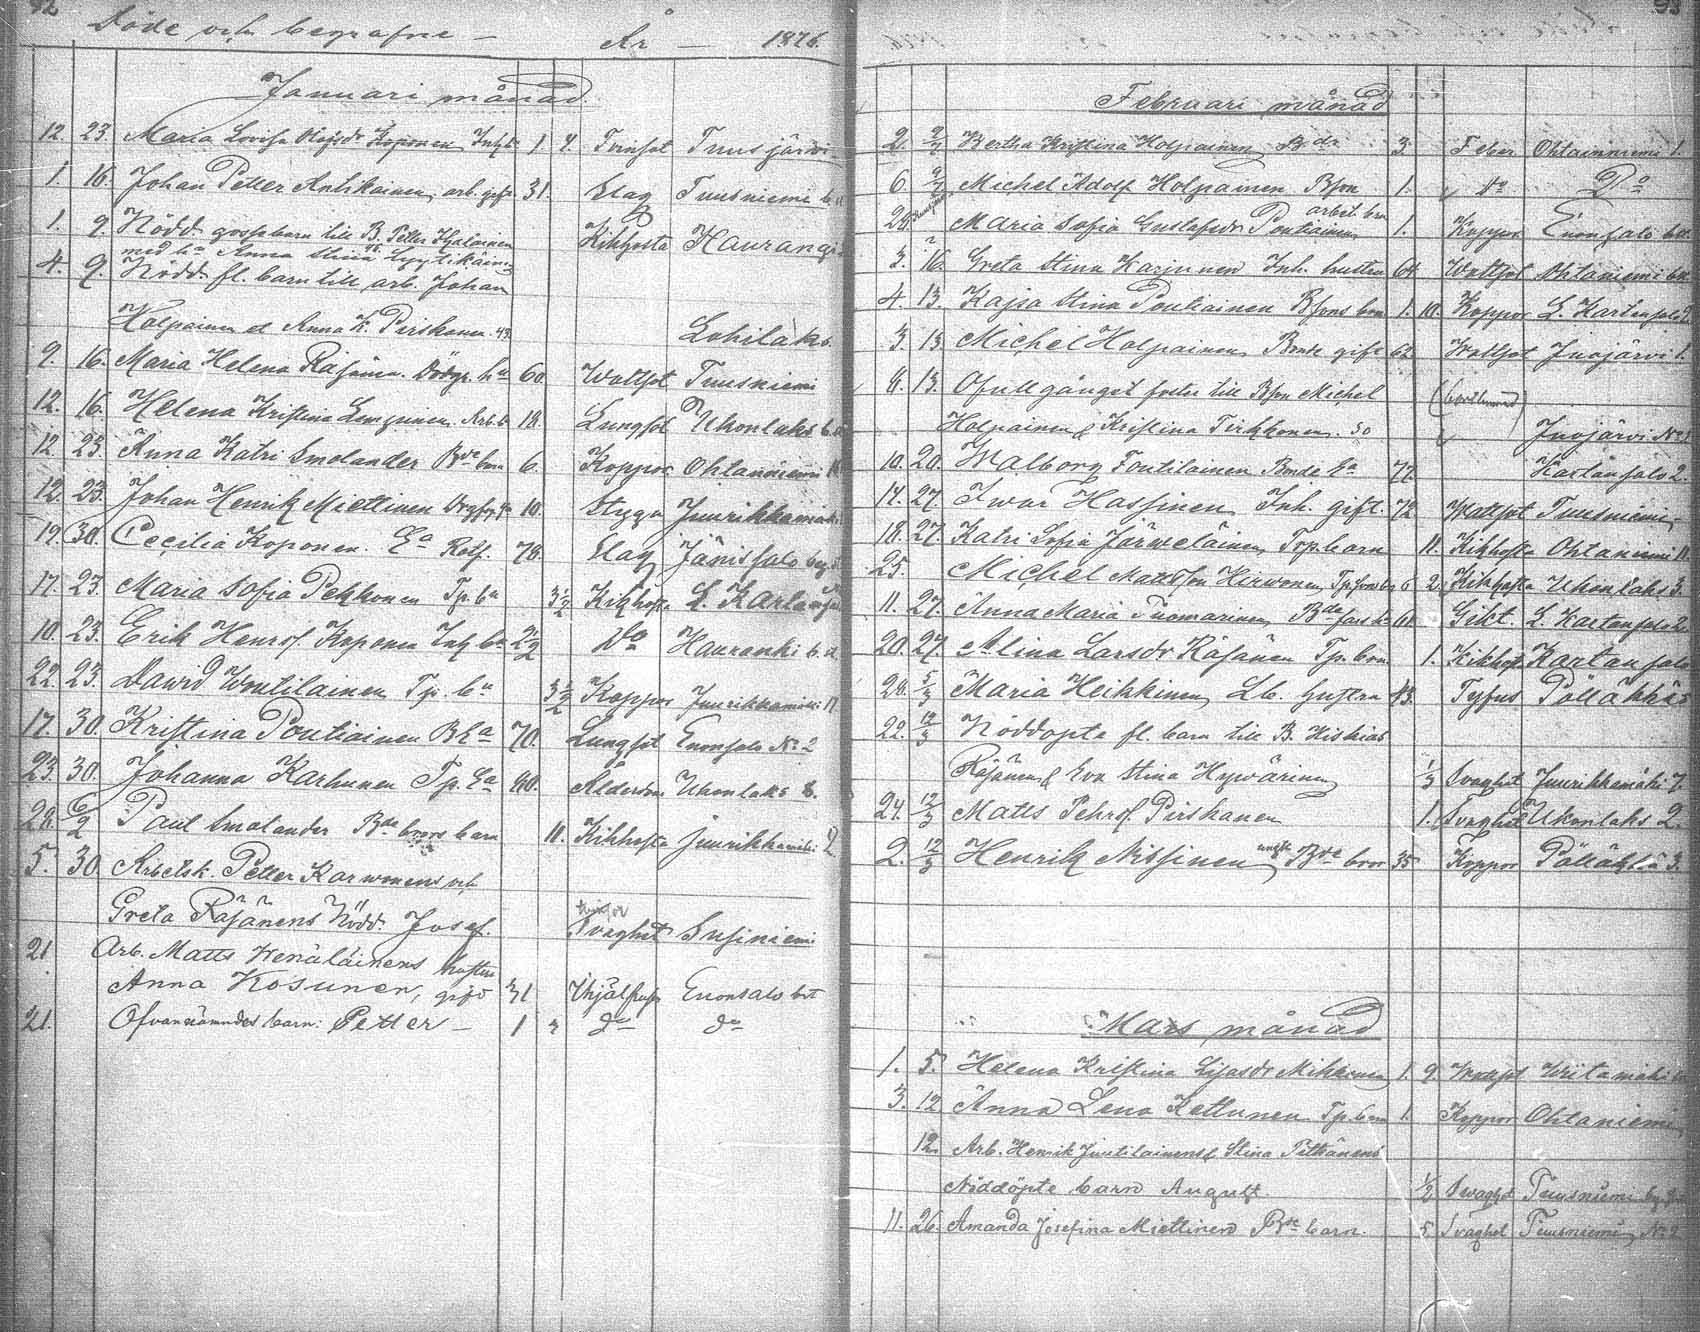 92
Döde och begrafne — År — 1876.
Januari månad.
12. 23. Maria Lovisa Koponen 1 4. Tvinsot Tuusjärvi
1. 16. Johan Petter Antikainen, arb. gift 31. Slag Tuusniemi
1. 9. Nödd. gossebarn till B. Petter Hyvärinen Kikhosta Hauranki
med hu Anna Stina
4. 9. Nödd. fl. barn till arb. Johan
Holpainen et Anna K. Pirskanen. 43. Lohilaks.
9. 16. Maria Helena Räsänen. 60. Wattsot Tuusniemi
12. 16. Helena Kristina 18. Lungsot Ukonlaks
12. 23. Anna Katri Smolander Bde barn 6. Koppor Ohtaniemi
12. 23. Johan Henrik Miettinen 10. Stygn Juurikkamäki
19. 30. Cecilia Koponen. Ea Rotf. 78. Slag Jänissalo
17. 23. Maria Sofia Pekkonen Tp. bn 3 1/2 Kikhosta L. Kartansalo
10. 23. Erik Henrof. Koponen Inh bn 2 1/2 Do Hauranki
22. 23. David Woutilainen Tp. bn 3 1/2 Koppor Juurikkamäki
17. 30. Kristina Poutiainen B Ea 70. Lungsot Enonsalo No 2
23. 30. Johanna Karhunen Tp. Ea 80. Ålderdom Ukonlaks 8.
22. 6/2 Paul Smolander Bde brors barn 11. Kikhosta Juurikkamäki 2
5. 30. Arbetsk. Petter Karvonens och
Greta Räsänens Nödd. Josef. Svaghet Susiniemi
21 Arb. Matts Venäläinens hustru
Anna Kosunen, gift 31 Ihjälfrusn Enonsalo
21. Ofvannämndes barn: Petter — 1 " do do
93
Februari månad
2. 9/2 Bertha Kristina Holpainen B.dr 3. Feber Ohtaniemi 1.
6. 9/2 Michel Adolf Holpainen Bson 1. " do Do
20. Maria Sofia Gustafsdr Poutiainen arbet. brn 1. Koppor Enonsalo
3. 16. Greta Stina Karjunen Inh. hustru 64 Wattsot Ohtaniemi
4. 13. Kajsa Stina Poutiainen Bsons brn 1. 10. Koppor L. Kartansalo 2
3. 13. Michel Holpainen Bonde gift 62 Wattsot Juojärvi 1.
8. 13. Ofullgånget foster till Bson Michel
Holpainen & Kristina Tirkkonen. 30 " Juojärvi No 1
10. 20. Walborg Toutilainen Bonde Ea 77. Kartansalo 2.
14. 27. Iwar Hassinen Inh. gift. 72 Wattsot Tuusniemi
18. 27. Katri Sofia Järweläinen Torp.barn 11. Kikhosta Ohtaniemi 11
25. Michel Mattsson Hirwonen, 6 2. Kikhosta Ukonlaks 3.
11. 27. Anna Maria Tuomarinen Gikt. L. Kartansalo 2.
20. 27. Alina Larsdr Räsänen Tp. brn 1. Kikhost Kartansalo
26. 5/3 Maria Heikkinen Lb. hustru 43. Tyfus Pölläkkä
22. 12/3 Nöddöpta fl. barn till B. Hiskias
Räsänen & Eva Stina Hyvärinen 1/3 Svaghet Juurikkamäki 7.
24. 12/3 Matts Pehrof. Pirskanen 1. Svaghet Ukonlaks 2.
2. 12/3 Henrik Nissinen Bde bror 35 Koppor Pölläkkä 3.
Mars månad
1. 5. Helena Kristina Lisasdr Mikkonen 1. 9. Wattsot Wiitamäki
3. 12 Anna Lena Kettunen Tp. barn 1. Koppor Ohtaniemi
12. Arb. Henrik Juutilainens & Stina Pitkänens
Nöddöpte barn August. 1/2 Svaghet Tuusniemi
11. 26. Amanda Josefina Miettinen Bde barn. 5 Svaghet Tuusniemi No 2